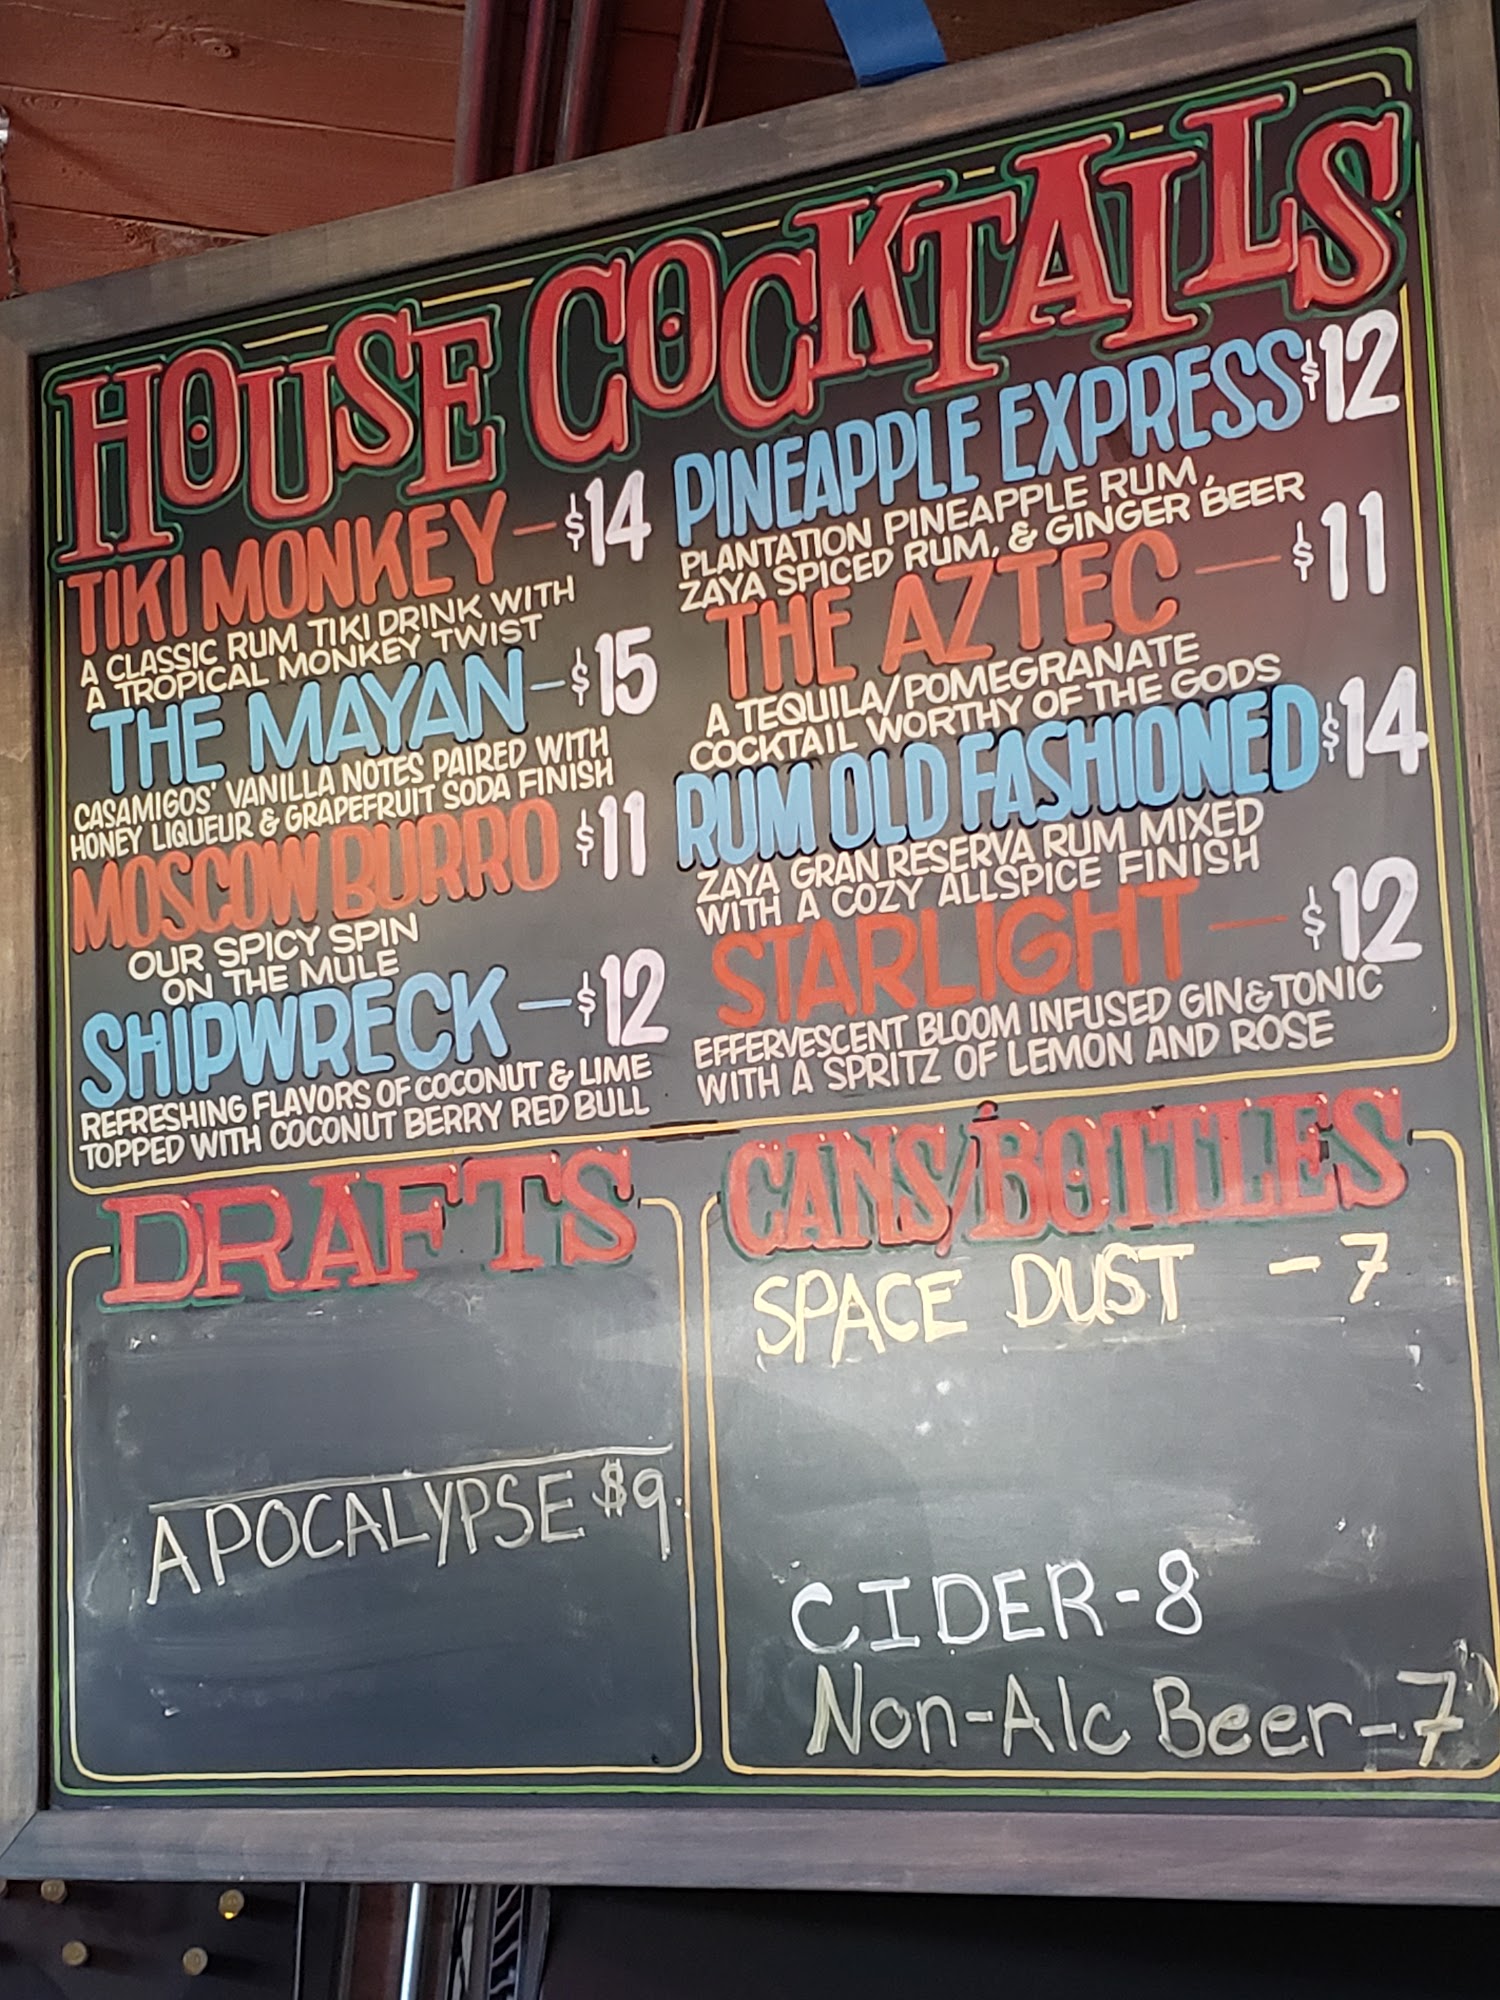 HOUSE COCKTAILS
TIKI MONKEY — $14
A CLASSIC RUM TIKI DRINK WITH
A TROPICAL MONKEY TWIST
THE MAYAN — $15
CASAMIGOS' VANILLA NOTES PAIRED WITH
HONEY LIQUEUR & GRAPEFRUIT SODA FINISH
MOSCOW BURRO $11
OUR SPICY SPIN
ON THE MULE
SHIPWRECK — $12
REFRESHING FLAVORS OF COCONUT & LIME
TOPPED WITH COCONUT BERRY RED BULL
PINEAPPLE EXPRESS $12
PLANTATION PINEAPPLE RUM,
ZAYA SPICED RUM, & GINGER BEER
THE AZTEC — $11
A TEQUILA/POMEGRANATE
COCKTAIL WORTHY OF THE GODS
RUM OLD FASHIONED $14
ZAYA GRAN RESERVA RUM MIXED
WITH A COZY ALLSPICE FINISH
STARLIGHT — $12
EFFERVESCENT BLOOM INFUSED GIN & TONIC
WITH A SPRITZ OF LEMON AND ROSE
DRAFTS
APOCALYPSE $9
CANS/BOTTLES
SPACE DUST - 7
CIDER - 8
Non-Alc Beer - 7